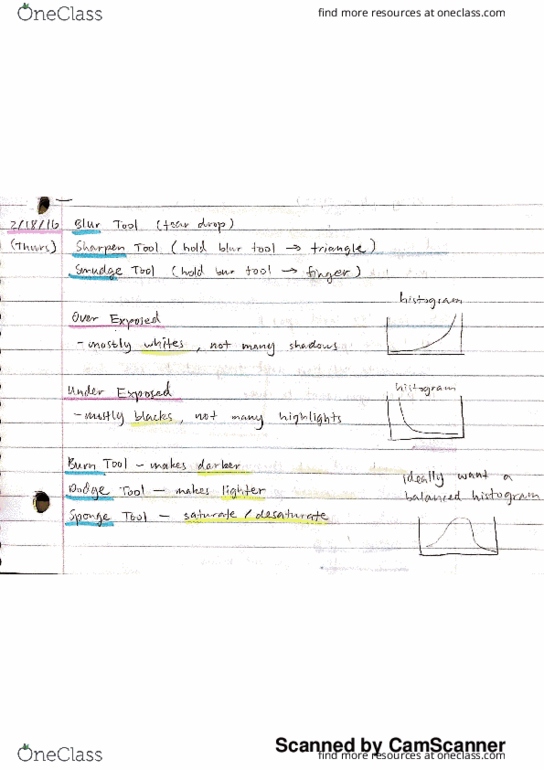 OneClass find more resources at oneclass.com
2/18/16 Blur Tool (tear drop)
(Thurs) Sharpen Tool (hold blur tool → triangle)
Smudge Tool (hold bur tool → finger)
histogram
Over Exposed
- mostly whites, not many shadows
histogram
Under Exposed
- mostly blacks, not many highlights
Burn Tool - makes darker
Ideally want a
Dodge Tool - makes lighter
balanced histogram
Sponge Tool - saturate / desaturate
Scanned by CamScanner
OneClass find more resources at oneclass.com